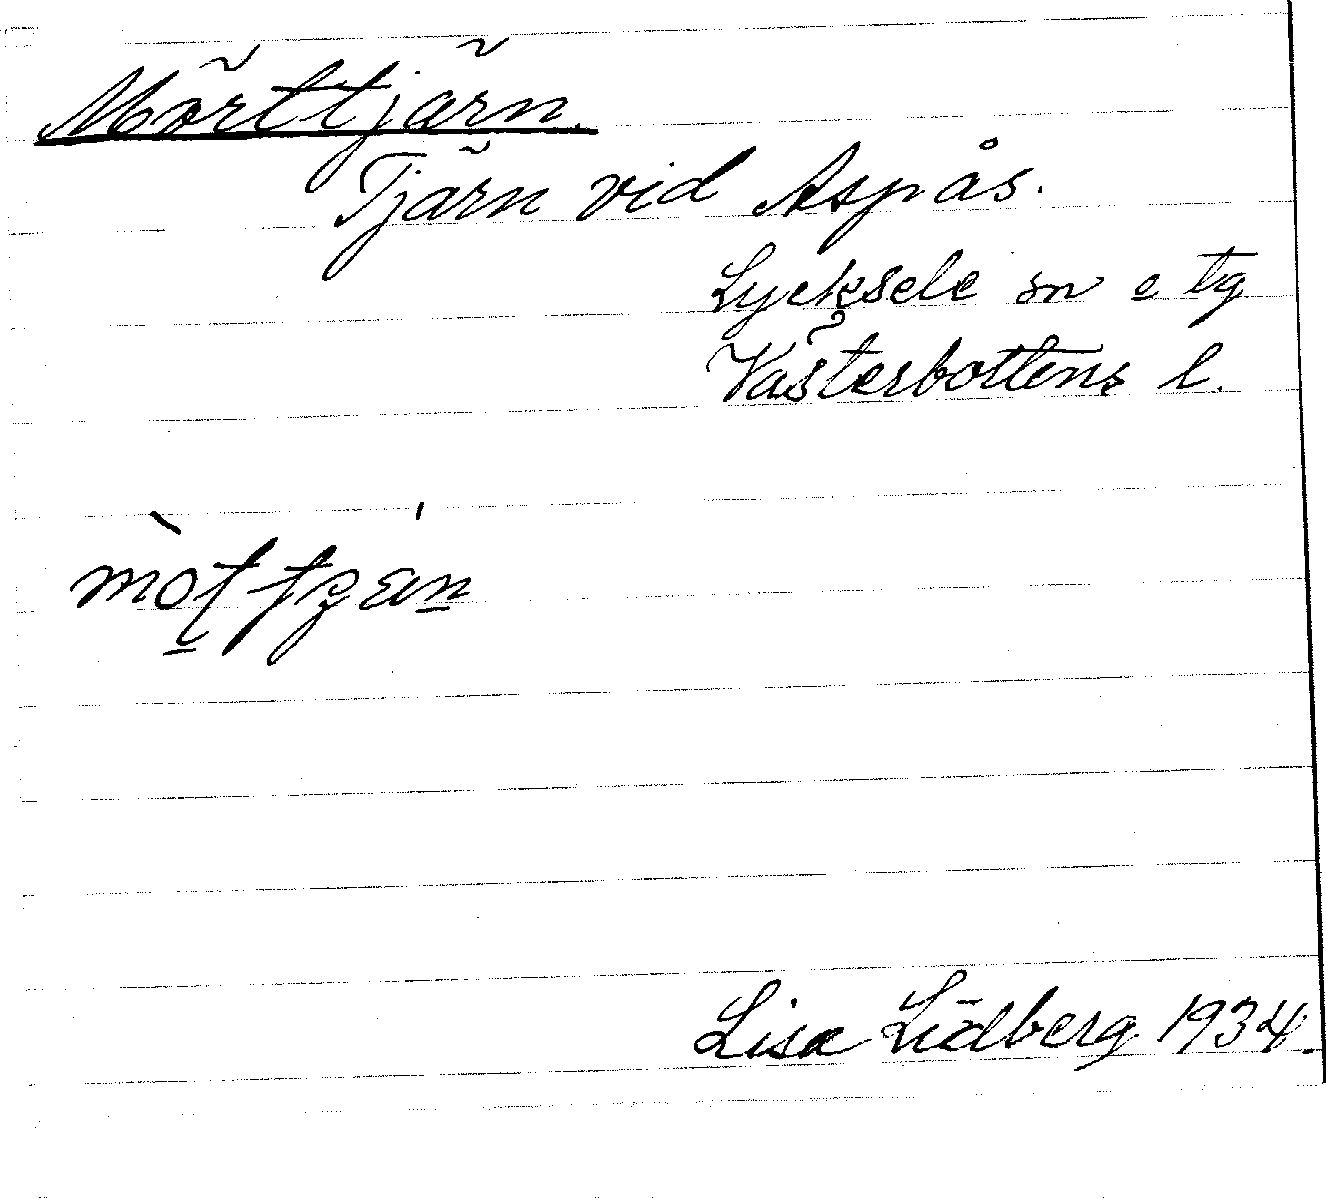 Mörttjärn.
Tjärn vid Aspås.
Lycksele sn o tg
Västerbottens l.
Lisa Lidberg 1934.